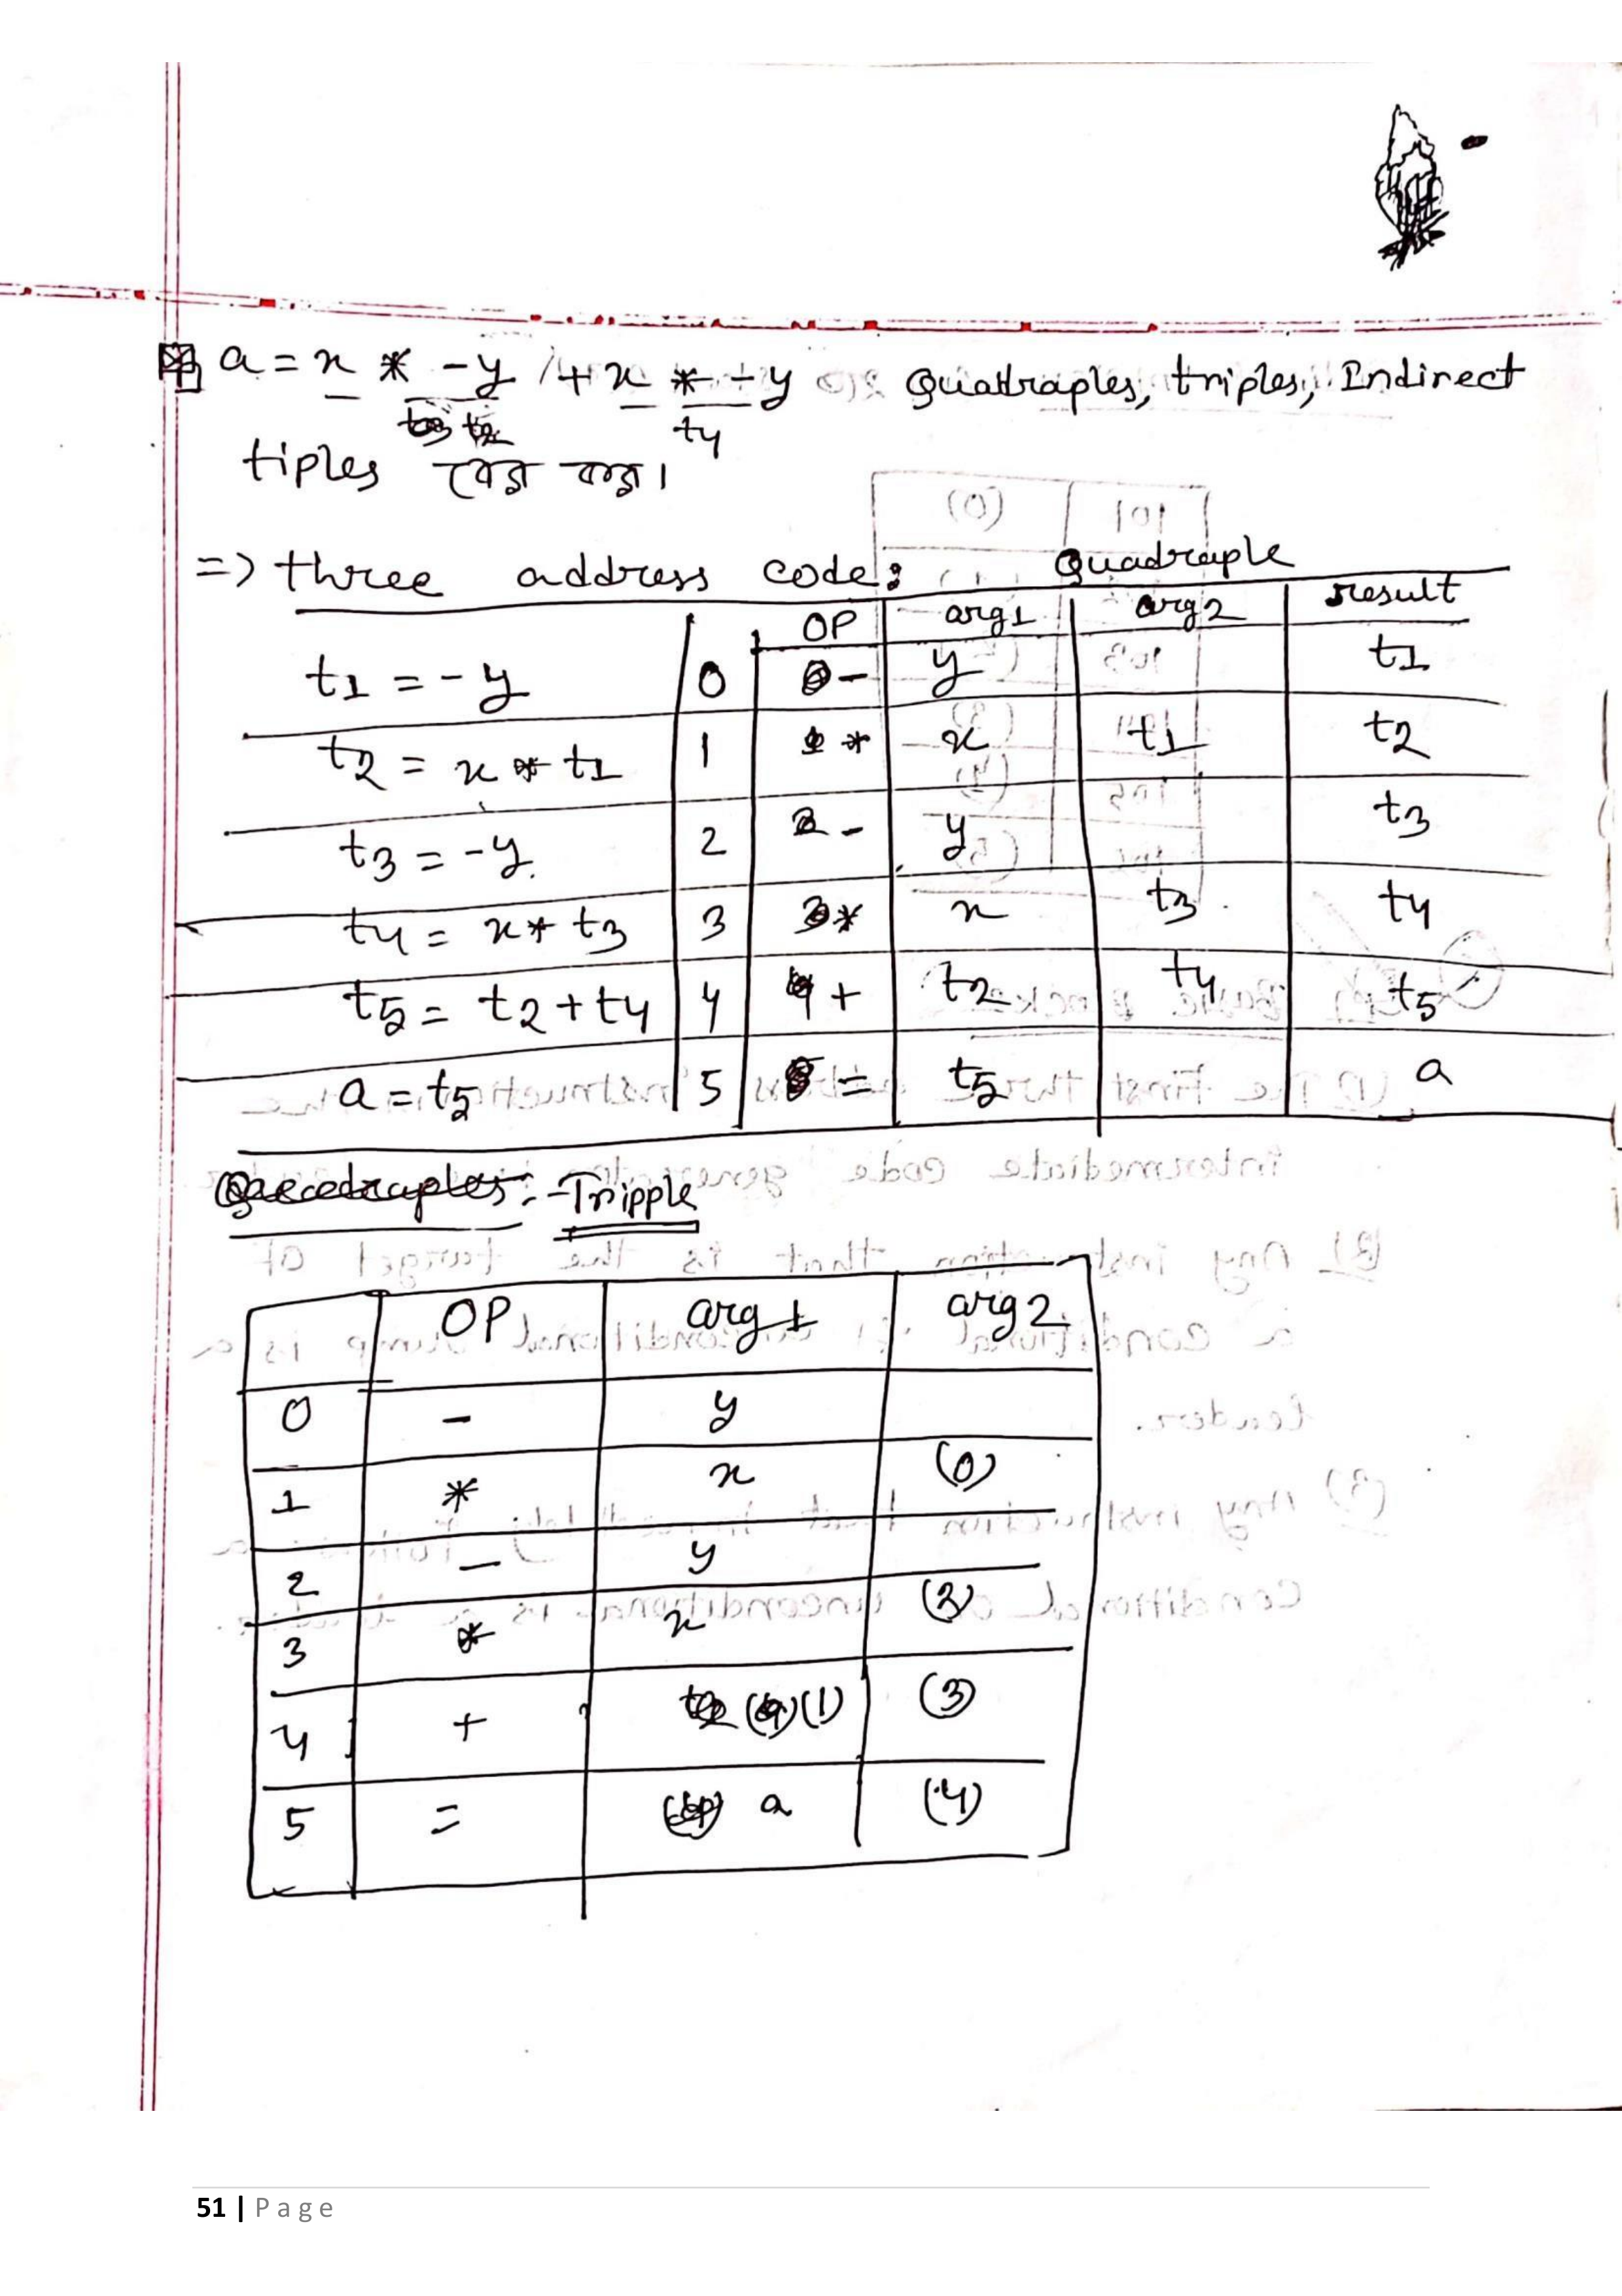 a = x * -y + x * -y এর Quadraples, triples, Indirect
t4
tiples বের কর।
=> three address code: Quadraple
OP arg1 arg2 result
t1 = -y 0 - y t1
t2 = x * t1 1 * x t1 t2
t3 = -y. 2 - y t3
t4 = x * t3 3 * x t3 t4
t5 = t2 + t4 4 + t2 t4 t5
a = t5 5 = t5 a
Quadraples: - Tripple
OP arg1 arg2
0 - y
1 * x (0)
2 - y
3 * x (2)
4 + (1) (3)
5 = a (4)
51 | Page